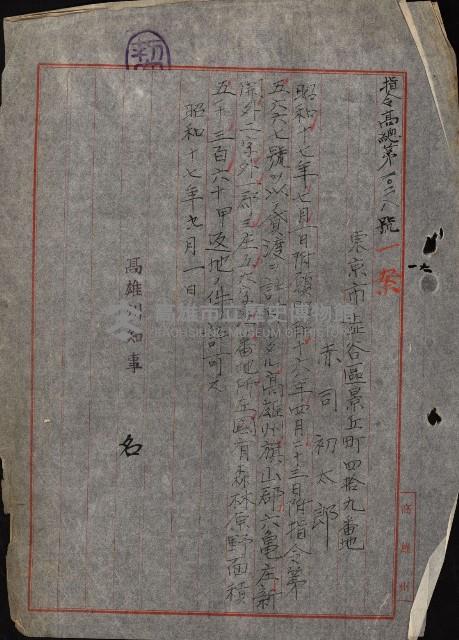 指令高總第一〇二八號
一案
東京市澁谷區景丘町四拾九番地
赤司初太郎
昭和十七年七月一日附願昭和十六年四月二十三日附指令第
五六六七號ヲ以テ貸渡ヲ許可シタル高雄州旗山郡六龜庄新
外二字外一郡三庄五大字 番地所在國有森林原野面積
五千三百六十甲返地ノ件許可ス
昭和十七年七月一日
高雄州知事
名
高雄州
高雄市立歷史博物館
KAOHSIUNG MUSEUM OF HISTORY